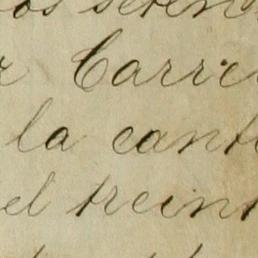 os seten
r Carri
la cant
el treint